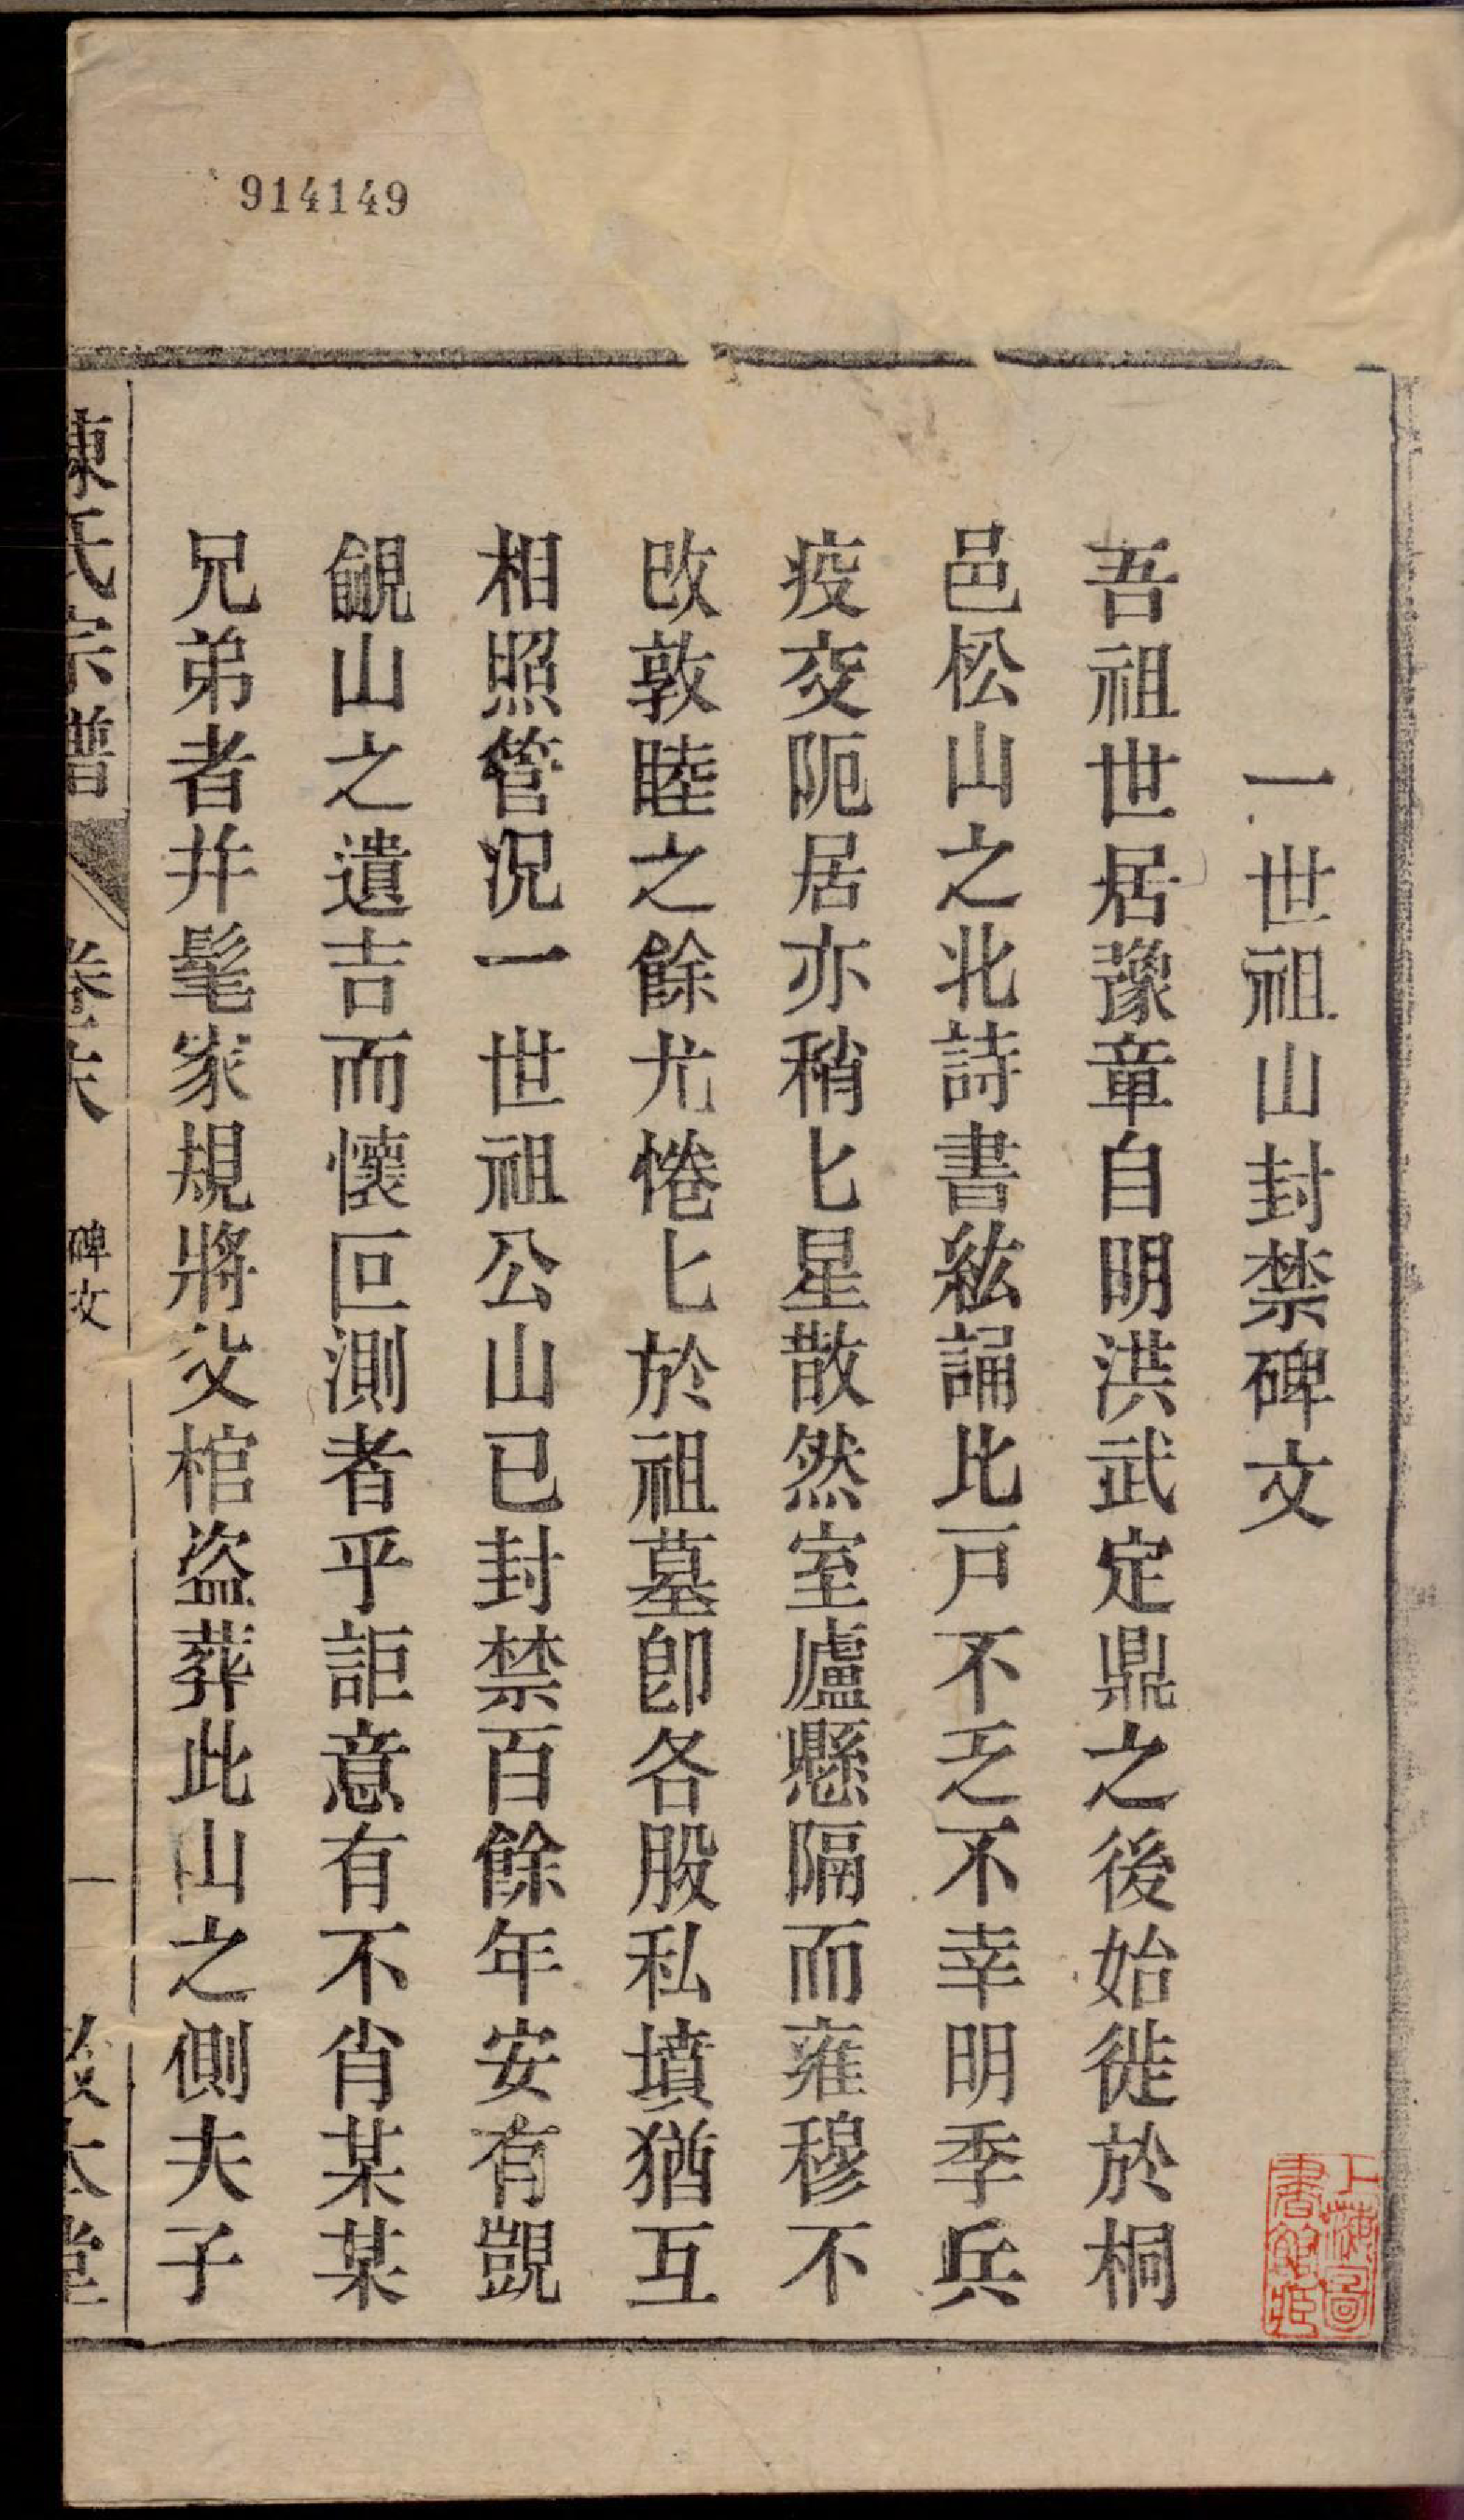 914149
一世祖山封禁碑文
吾祖世居豫章自明洪武定鼎之後始徙於桐
邑松山之北詩書絃誦比戸不乏不幸明季兵
疫交阨居亦稍匕星散然室廬懸隔而雍穆不
改敦睦之餘尤惓匕於祖墓卽各股私墳猶互
相照管况一世祖公山已封禁百餘年安有覬
覦山之遺吉而懷叵測者乎詎意有不肖某某
兄弟者弁髦家規將父棺盗葬此山之側夫子
陳氏宗譜 卷末 碑文 一 敬本堂
上海圖書館藏